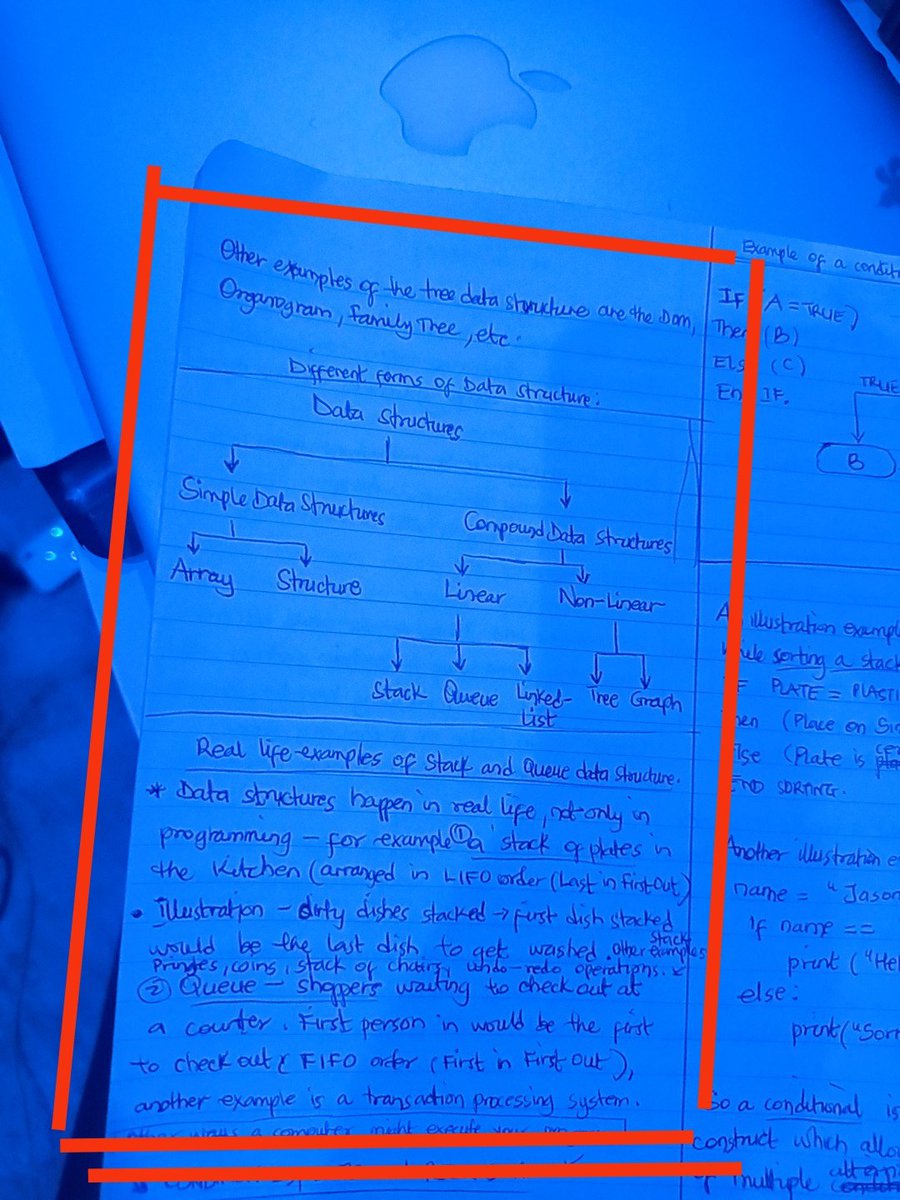 Other examples of the tree data structure are the Dom,
Organogram, family Tree, etc.
Different forms of Data structure:
Data structures
Simple Data Structures
Compound Data structures
Array
Structure
Linear
Non-Linear
Stack
Queue
Linked-
List
Tree
Graph
Real life-examples of Stack and Queue data structure.
* Data structures happen in real life, not only in
programming - for example ① a stack of plates in
the Kitchen (arranged in LIFO order (Last in first Out)
• illustration - dirty dishes stacked → first dish stacked
would be the last dish to get washed. other stack examples
Pringles, coins, stack of chairs, undo-redo operations.
② Queue - shoppers waiting to check out at
a counter. First person in would be the first
to check out ( FIFO order (First in First Out),
another example is a transaction processing system.
other ways a computer might execute your
Example of a conditi
If (A = TRUE)
Then (B)
Els (C)
En IF.
TRUE
B
A illustration exampl
while sorting a stack
PLATE = PLASTI
hen (Place on Si
lse (Plate is
END SORTING.
Another illustration e
name = "Jason
If name ==
print ("Hel
else:
print("Sorr
So a conditional is
construct which allo
of multiple